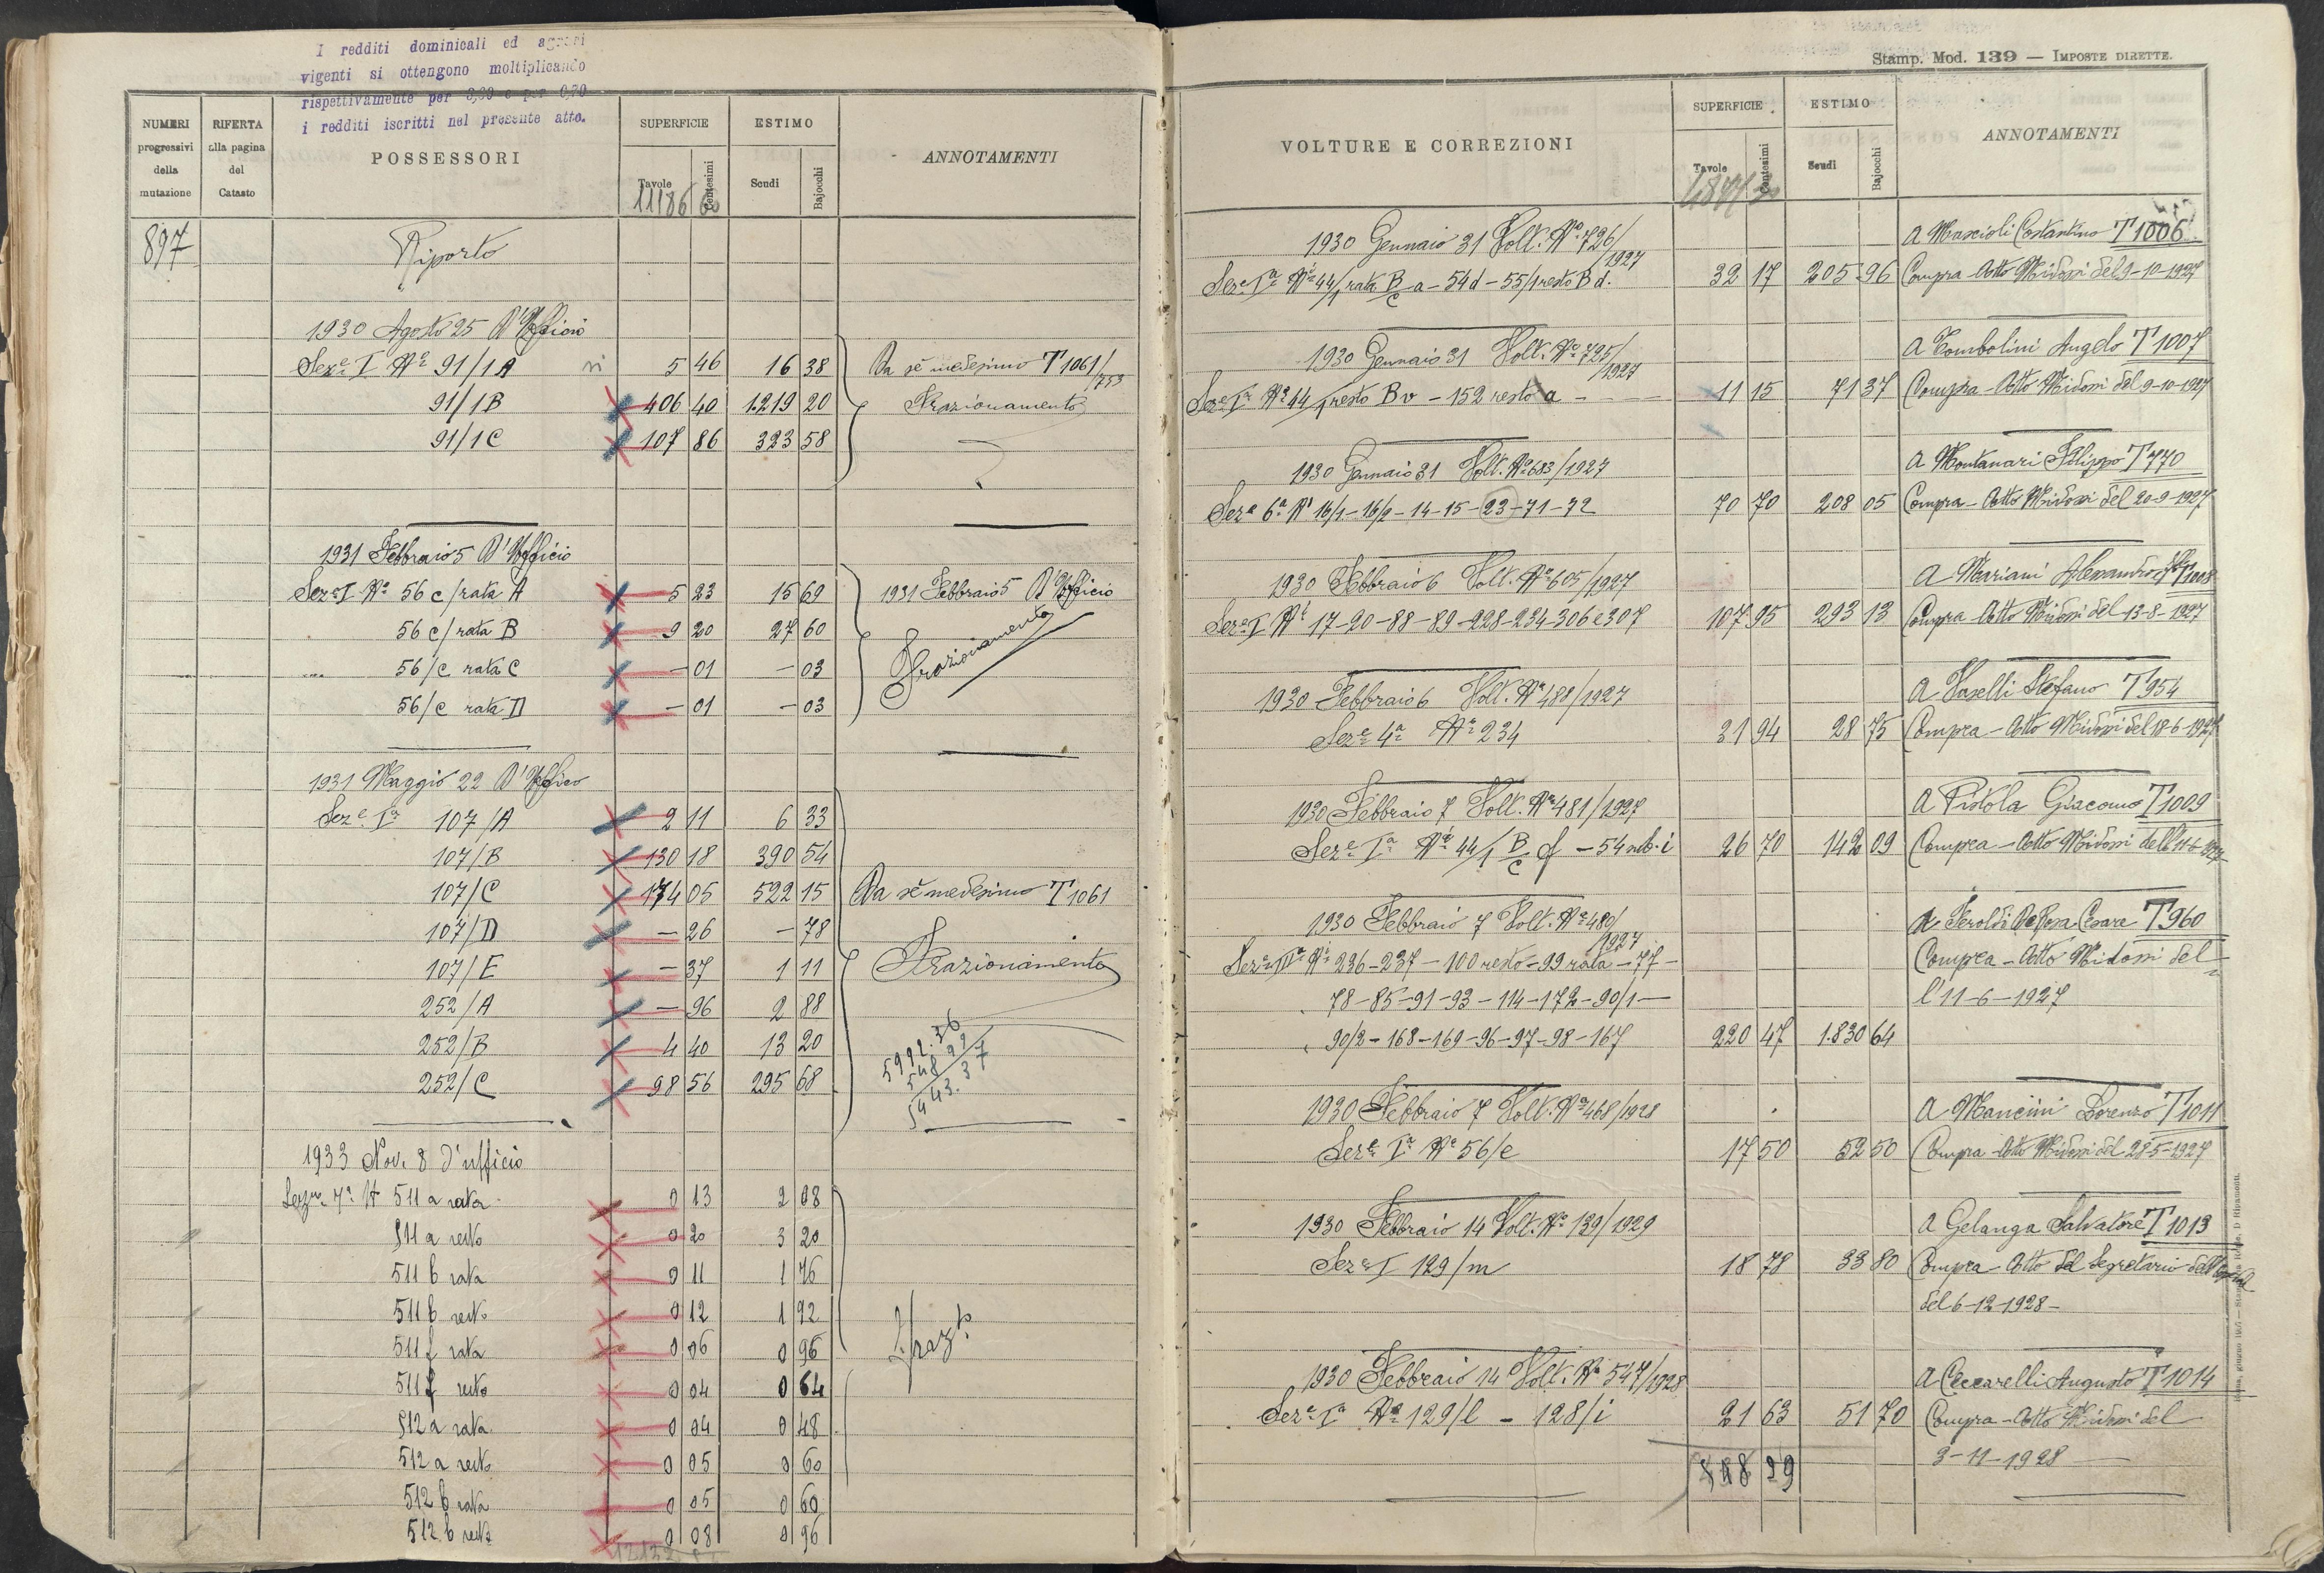 I redditi dominicali ed agrari
vigenti si ottengono moltiplicando
rispettivamente per
i redditi iscritti nel presente atto.
NUMERI progressivi della mutazione
RIFERTA alla pagina del Catasto
POSSESSORI
SUPERFICIE Tavole Centesimi
ESTIMO Scudi Bajocchi
ANNOTAMENTI
11186 60
897 Riporto
1930 Agosto 25 D'Ufficio
Sez.e I N.o 91/1A si 5 46 16 38 Da sè medesimo T 1061/753
91/1B 406 40 1.219 20 Frazionamento
91/1C 107 86 323 58
1931 Febbraio 5 D'Ufficio
Sez.e I N.o 56 c/rata A 5 23 15 69 1931 Febbraio 5 D'Ufficio
56 c/rata B 9 20 27 60 Frazionamento
56/c rata C – 01 – 03
56/c rata D – 01 – 03
1931 Maggio 22 D'Ufficio
Sez.e I.a 107/A 2 11 6 33
107/B 130 18 390 54
107/C 174 05 522 15 Da sè medesimo T 1061
107/D – 26 – 78
107/E – 37 1 11 Frazionamento
252/A – 96 2 88
252/B 4 40 13 20
252/C 98 56 295 68
5992.36
548 99
5443.37
1933 Nov. 8 d'ufficio
Sez.ne 7.a N 511 a rata 0 13 2 08
511 a resto 0 20 3 20
511 b rata 0 11 1 76
511 b resto 0 12 1 92
511 f rata 0 06 0 96 Fraz.to
511 f resto 0 04 0 64
512 a rata 0 04 0 48
512 a resto 0 05 0 60
512 b rata 0 05 0 60
512 b resto 0 08 0 96
Stamp. Mod. 139 — IMPOSTE DIRETTE.
VOLTURE E CORREZIONI
SUPERFICIE Tavole Centesimi
ESTIMO Scudi Bajocchi
ANNOTAMENTI
1930 Gennaio 31 Volt. N.o 726/1927 A Mascioli Costantino T 1006
Sez.e I.a N.i 44/1 rata B/c a – 54 d – 55/1 resto B d. 32 17 205 96 Compra – Atto Midossi del 9-10-1927
1930 Gennaio 31 Volt. N.o 725/1927 A Tombolini Angelo T 1007
Sez.e I.a N.i 44/1 resto B v – 152 resto a – – – 11 15 71 37 Compra – Atto Midossi del 9-10-1927
1930 Gennaio 31 Volt. N.o 683/1927 A Montanari Filippo T 770
Sez.e 6.a N.i 16/1 – 16/2 – 14 – 15 – 23 – 71 – 72 70 70 208 05 Compra – Atto Midossi del 20-9-1927
1930 Febbraio 6 Volt. N.o 605/1927 A Mariani Alessandro T 1008
Sez.e I N.i 17-20-88-89-228-234-306 e 307 107 95 293 13 Compra – Atto Midossi del 13-8-1927
1930 Febbraio 6 Volt. N.o 488/1927 A Vaselli Stefano T 954
Sez.e 4.a N.o 234 21 94 28 75 Compra – Atto Midossi del 18-6-1927
1930 Febbraio 7 Volt. N.o 481/1927 A Pistola Giacomo T 1009
Sez.e I.a N.i 44/1 B/c f – 54 sub. i 26 70 142 09 Compra – Atto Midossi dell'11-6-1927
1930 Febbraio 7 Volt. N.o 480/1927 A Feroldi De Rosa Cesare T 960
Sez.e II.a N.i 236 – 237 – 100 resto – 99 rata – 77 – Compra – Atto Midossi del
78 – 85 – 91 – 93 – 114 – 172 – 90/1 — l'11-6-1927
90/2 – 168 – 169 – 96 – 97 – 98 – 167 220 47 1.830 64
1930 Febbraio 7 Volt. N.o 468/1928 A Mancini Lorenzo T 1011
Sez.e I.a N.o 56/e 17 50 52 50 Compra – Atto Midossi del 28-5-1927
1930 Febbraio 14 Volt. N.o 139/1929 A Gelanga Salvatore T 1013
Sez.e I 129/m 18 78 33 80 Compra – Atto del Segretario
del 6-12-1928 –
1930 Febbraio 14 Volt. N.o 547/1928 A Ceccarelli Augusto T 1014
Sez.e I.a N.o 129/l – 128/i 21 63 51 70 Compra – Atto Midossi del
548 99 3-11-1928